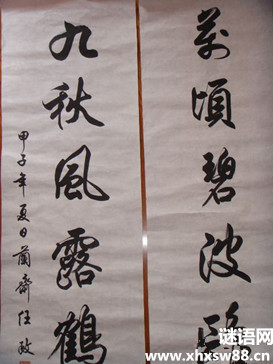 萬頃碧波鷗
九秋風露鶴
甲子年夏日蘭齋任政
谜语网
www.xhxsw88.cn